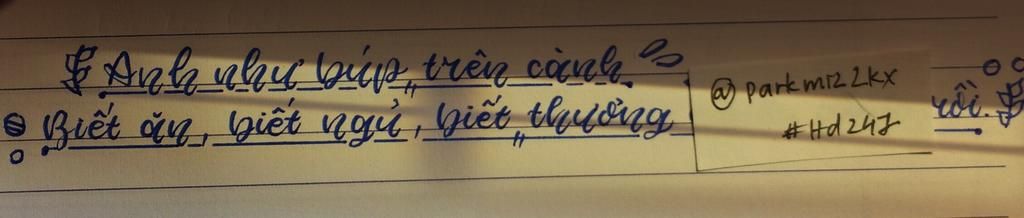 Anh như búp trên cành
Biết ăn, biết ngủ, biết thương rồi.
@parkmi22kx
#Hd247